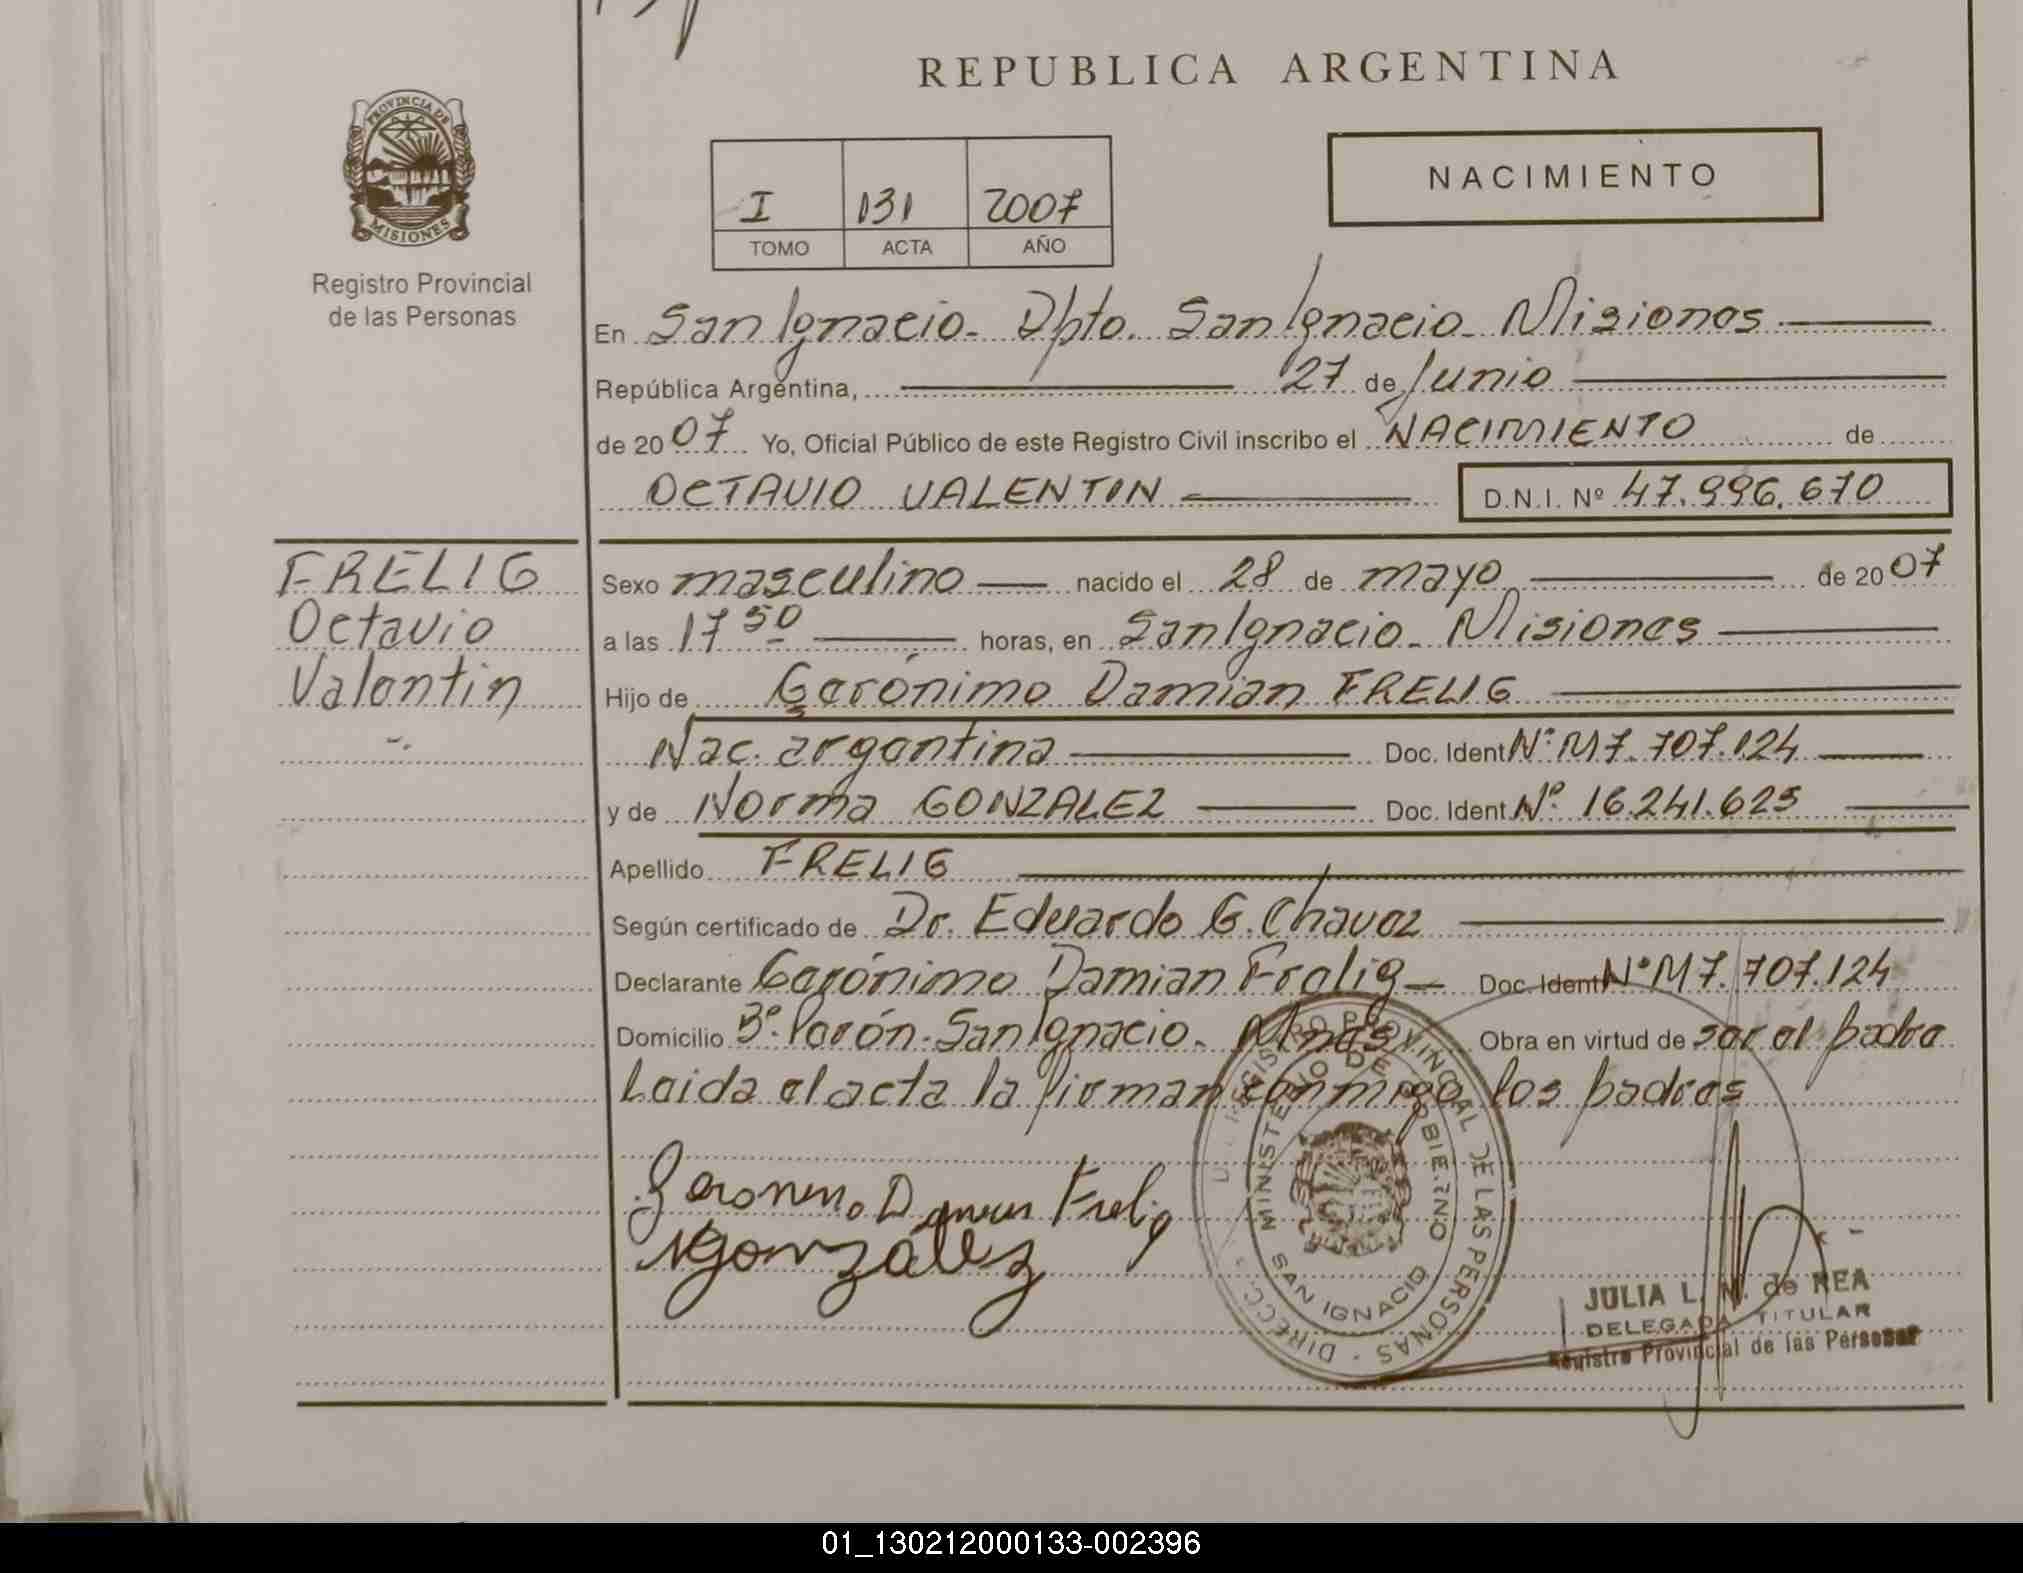 REPUBLICA ARGENTINA
PROVINCIA DE
MISIONES
Registro Provincial
de las Personas
I 131 2007
TOMO ACTA AÑO
NACIMIENTO
En San Ignacio - Dpto. San Ignacio - Misiones
República Argentina, 27 de Junio
de 2007 Yo, Oficial Público de este Registro Civil inscribo el NACIMIENTO de
OCTAVIO VALENTIN D.N.I. Nº 47.996.670
FRELIG
Octavio
Valentin
Sexo masculino nacido el 28 de mayo de 2007
a las 17 50 horas, en San Ignacio - Misiones
Hijo de Gerónimo Damian FRELIG
Nac. argentina Doc. Ident. Nº M7.707.124
y de Norma GONZALEZ Doc. Ident. Nº 16.241.625
Apellido FRELIG
Según certificado de Dr. Eduardo G. Chavez
Declarante Gerónimo Damian Frelig Doc. Ident. Nº M7.707.124
Domicilio Bº. Perón - San Ignacio - Mnes Obra en virtud de ser el padre
Leida el acta la firman conmigo los padres
Geronimo Damian Frelig
NGonzález
REGISTRO PROVINCIAL DE LAS PERSONAS - DIRECC.
MINISTERIO DE GOBIERNO
SAN IGNACIO
JULIA L. N. de REA
DELEGADA TITULAR
Registro Provincial de las Personas
01_130212000133-002396